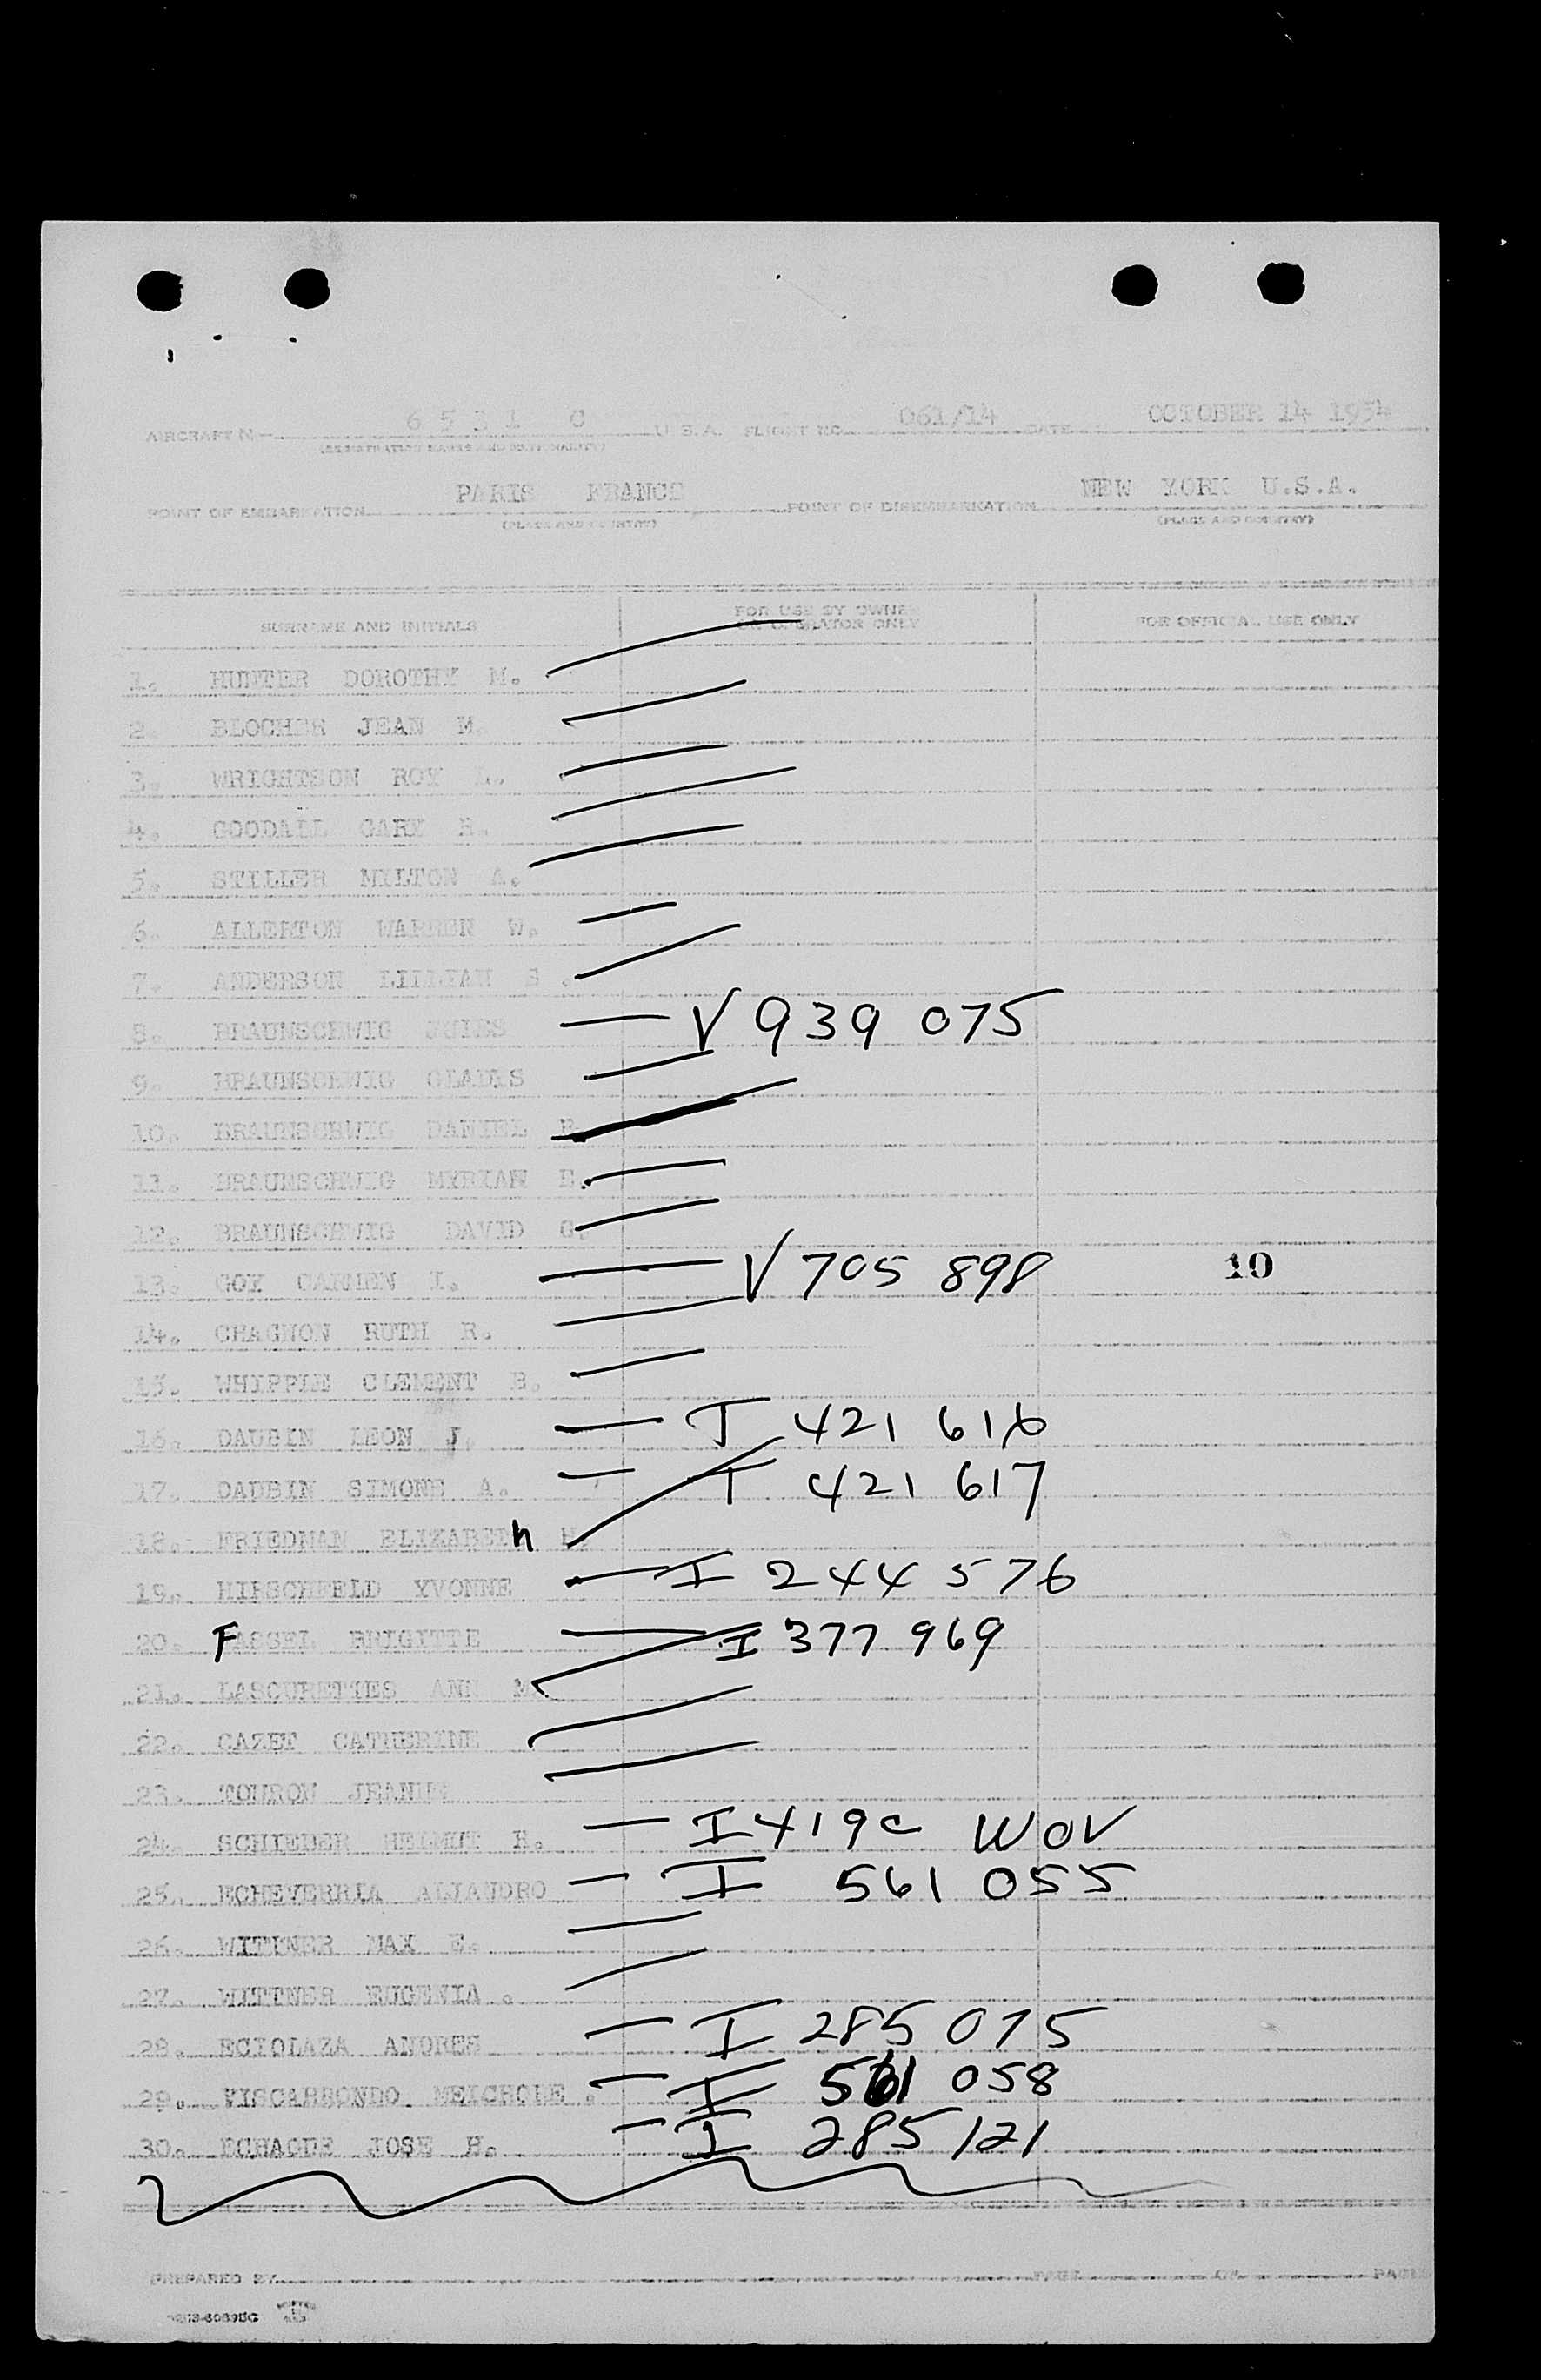 AIRCRAFT N- 6 5 1 1 C U.S.A. FLIGHT NO. 061/14 DATE OCTOBER 14 1954
(REGISTRATION MARKS AND NATIONALITY)
POINT OF EMBARKATION PARIS FRANCE POINT OF DISEMBARKATION NEW YORK U.S.A.
(PLACE AND COUNTRY) (PLACE AND COUNTRY)
SURNAME AND INITIALS FOR USE BY OWNER OR OPERATOR ONLY FOR OFFICIAL USE ONLY
1. HUNTER DOROTHY M.
2. BLOCHER JEAN M.
3. WRIGHTSON ROY
4. GOODALL GARY R.
5. STILLER MILTON A.
6. ALLERTON WARREN W.
7. ANDERSON LILLIAN S.
8. BRAUNSCHWIG JULES — V 939 075
9. BRAUNSCHWIG GLADYS
10. BRAUNSCHWIG DANIEL
11. BRAUNSCHWIG MYRIAM E.
12. BRAUNSCHWIG DAVID G.
13. GOY CARMEN I. — V 705 898 10
14. CHAGNON RUTH R.
15. WHIPPLE CLEMENT B.
16. DAUBIN LEON J. — I 421 616
17. DAUBIN SIMONE A. — I 421 617
18. FRIEDMAN ELIZABETh H.
19. HIRSCHFELD YVONNE — I 244 576
20. FASSEL BRIGITTE — I 377 969
21. LASCURETTES ANN M.
22. CAZET CATHERINE
23. TOURON JEANNE
24. SCHIEBER HELMUT R. — I 419c WOV
25. ECHEVERRIA ALJANDRO — I 561 055
26. WITTNER MAX E.
27. WITTNER EUGENIA .
28. ECIOLAZA ANDRES — I 285 075
29. VISCARRONDO MEICHOLE . — I 561 058
30. ECHAGUE JOSE — I 285 121
PREPARED BY PAGE OF PAGES